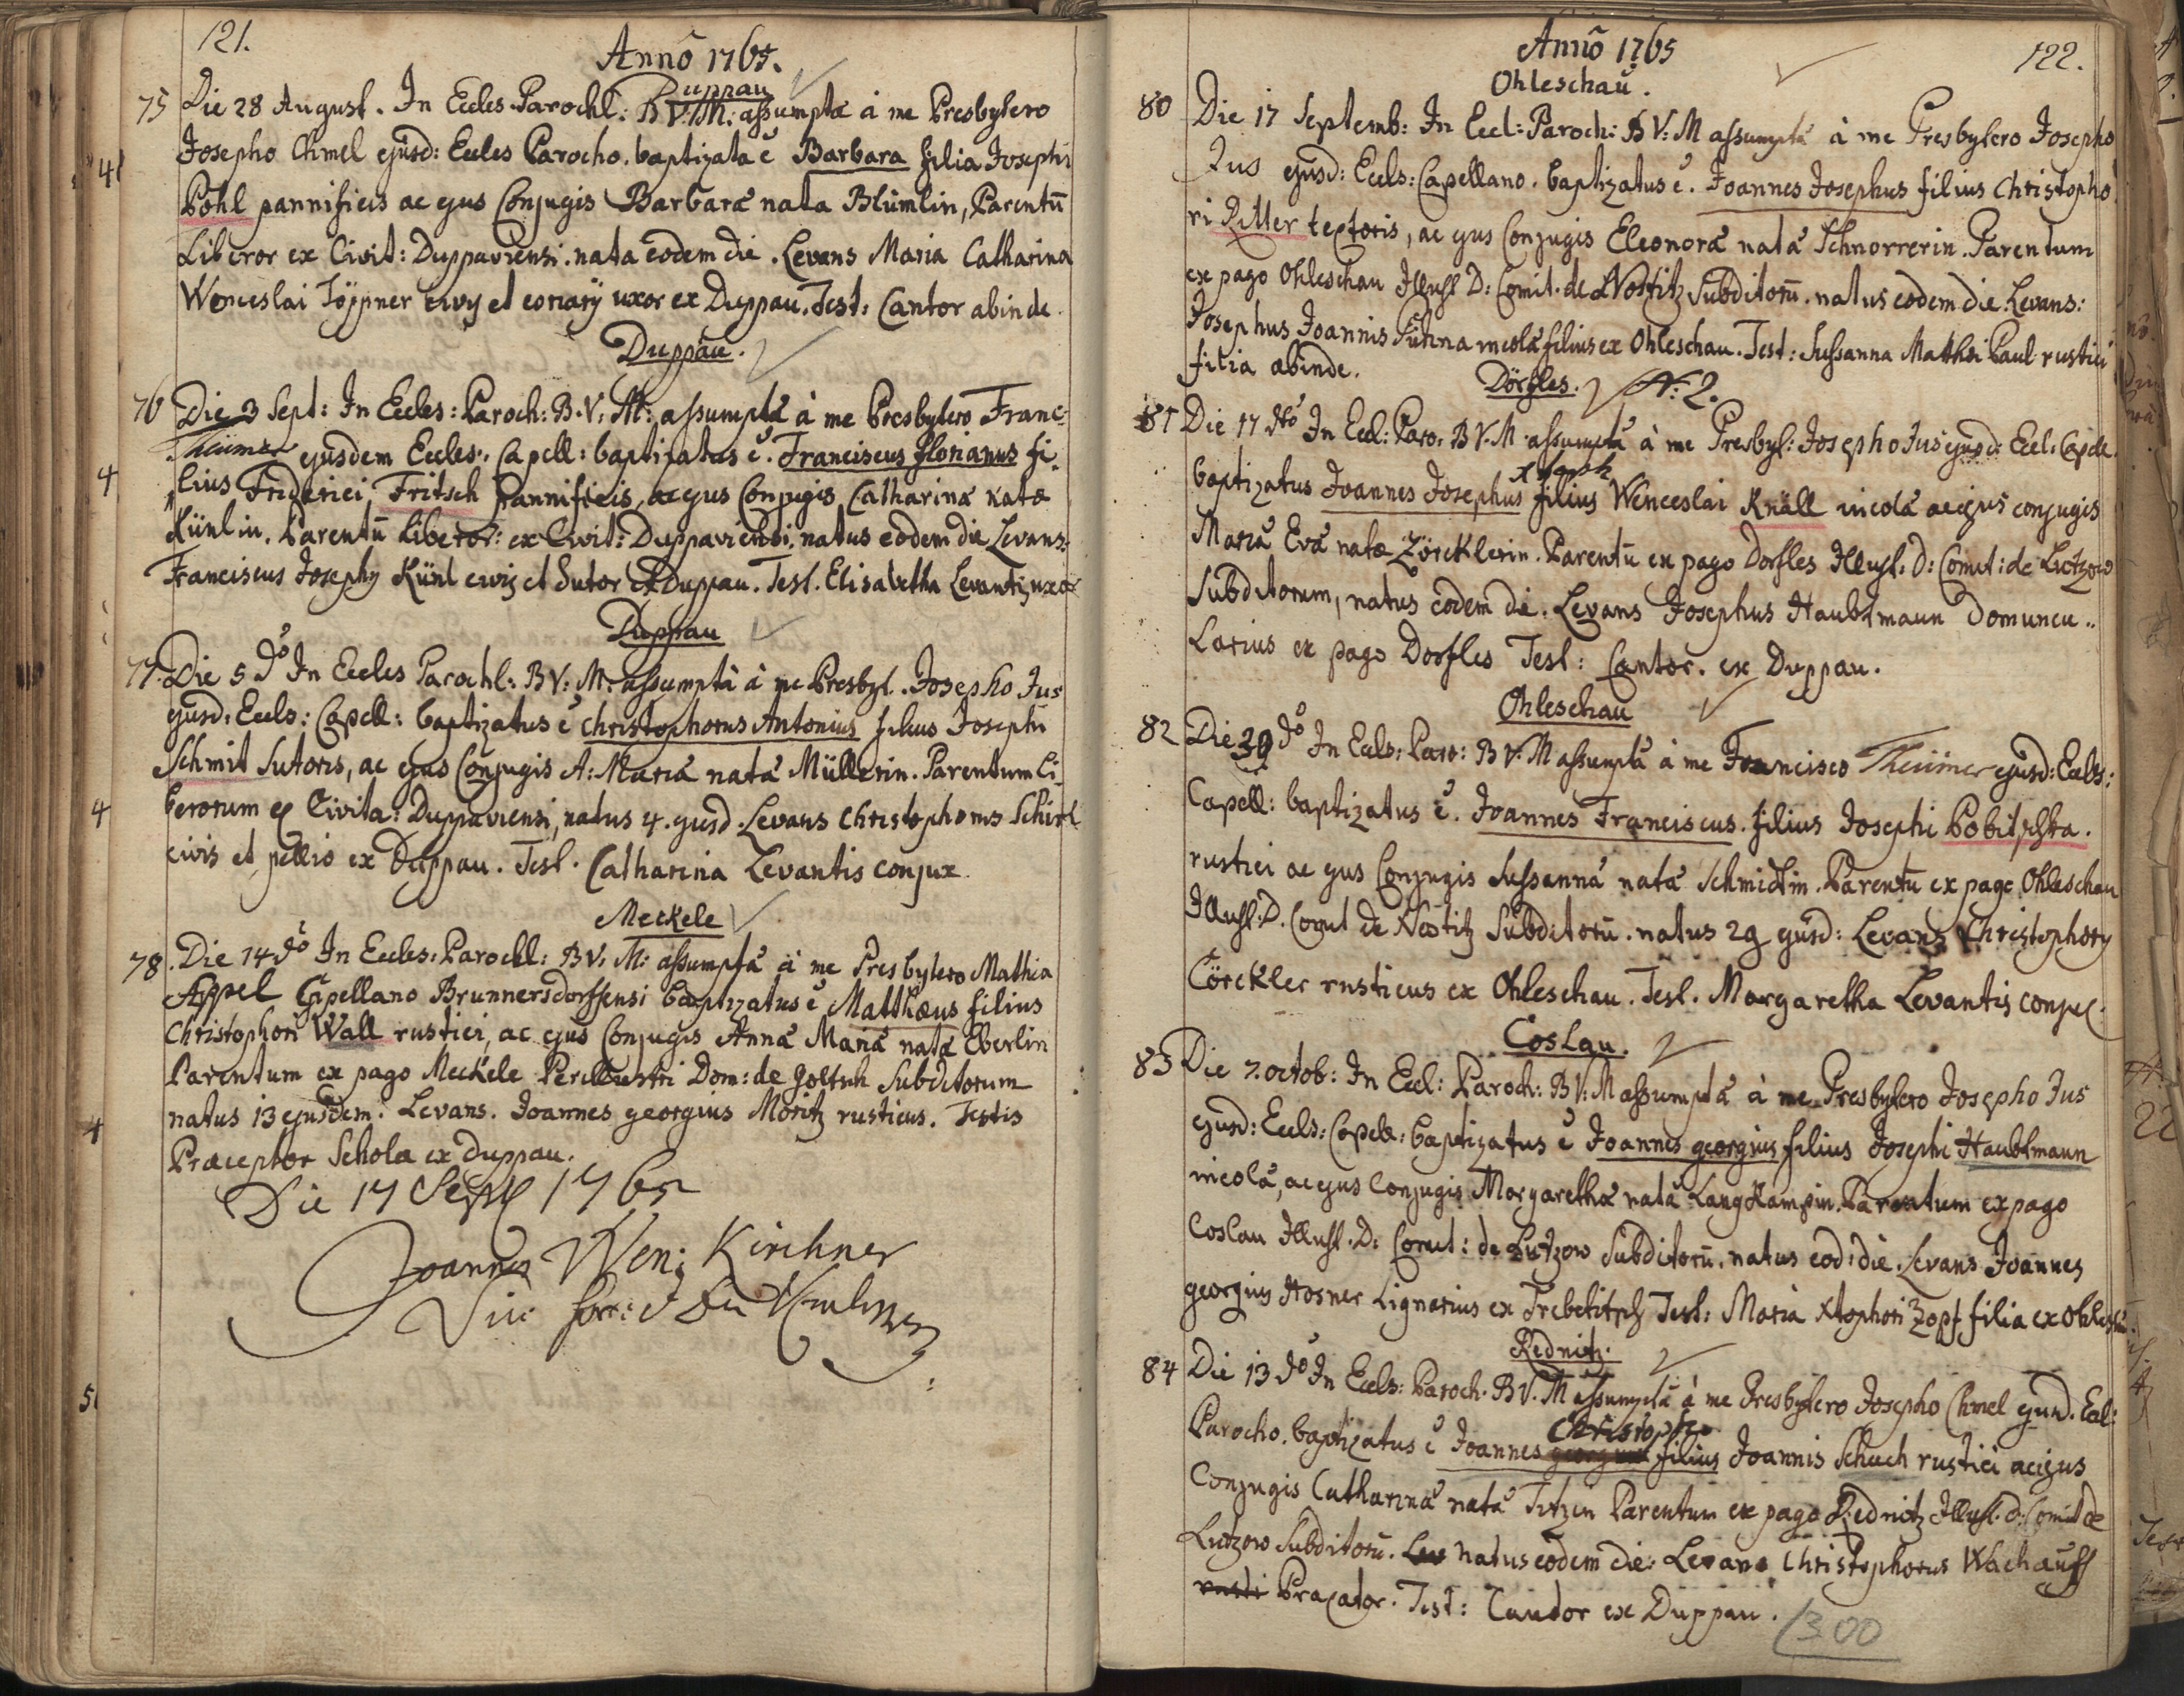 121.
Anno 1765.
Duppau
75 Die 28 August. In Eccles Parochl: B V: M: assumptæ à me Presbytero
Josepho Chmel ejusd: Eccles Parocho. baptizata ē Barbara filia Josephi
Pohl pannificis ac ejus Conjugis Barbara nata Blümlin, Parentū
Liberor ex Civit: Duppaviensi. nata eodem die. Levans Maria Catharina
Wenceslai Töppner civis et coriarij uxor ex Duppau. Test: Cantor abinde.
Duppau.
76 Die 3 Sept: In Eccles: Paroch: B. V: M: assumptæ à me Presbytero Franc:
Theümer ejusdem Eccles: Capell: baptizatus ē. Franciscus florianus fi
lius Friderici Fritsch Pannificis, ac ejus Conjugis Catharina natæ
Künlin. Parentū Liberor: ex Civit: Duppaviensi. natus eodem die Levans:
Franciscus Josephy Künl civis et Sutor ex Duppau. Test. Elisabetha Levantis uxor
Duppau
77. Die 5 dō In Eccles Parochl: B V: M: assumptà à me Presbyt. Josepho Jus
ejusd: Eccls: Capell: baptizatus ē Christophorus Antonius filius Josephi
Schmit Sutoris, ac ejus Conjugis A: Maria nata Müllerin. Parentum li
berorum ex Civita: Duppaviensi, natus 4. ejusd. Levans Christophorus Schirl
civis et pellio ex Duppau. Test. Catharina Levantis conjux.
Meckele
78. Die 14 dō In Eccles: Parochl: B V: M: assumptà à me Presbytero Mathia
Appel Capellano Brunnersdorffensi baptizatus ē Matthæus filius
Christophori Wall rustici, ac ejus Conjugis Anna Maria nata Eberlin
Parentum ex pago Meckele Perillustri Dom: de Goltsch Subditorum
natus 13 ejusdem. Levans. Joannes georgius Möritz rusticus. Testis
Præceptor Schola ex Duppau.
Die 17 Sept 1765
Joannes Wen: Kirchner
4
4
4
4
5
Anno 1765
122.
Ohleschau.
80 Die 17 Septemb: In Eccl: Paroch: B V: M assumptà à me Presbytero Josepho
Jus ejusd: Eccls: Capellano. baptizatus ē. Joannes Josephus filius Christopho
ri Ritter textoris, ac ejus Conjugis Eleonora nata Schnorrerin. Parentum
ex pago Ohleschau Illust D: Comit. de Nostitz Subditorū. natus eodem die. Levans:
Josephus Joannis incola filius ex Ohleschau. Test: Sussanna Matthæi Paul rustici
filia abinde.
Dörfles. N: 2.
81 Die 17 dtō In Eccl: Paro: B V. M assumptà à me Presbyt: Josepho Jus ejusd: Eccl: Capell
baptizatus Joannes Josephus filius Wenceslai Knäll incola ac ejus conjugis
Maria Eva natæ Zörcklerin. Parentū ex pago Dorfles Illust. D: Comit: de Lutzow
Subditorum, natus eodem die. Levans Josephus Haubtmann Domuncu..
Larius ex pago Dorfles Test: Cantor. ex Duppau.
Ohleschau
82 Die 29 dō In Eccls: Paro: B V: M assumptà à me Francisco Theümer ejusd: Eccls:
Capell: baptizatus ē. Joannes Franciscus. filius Josephi Pobitschka.
rustici ac ejus Conjugis Sussanna nata Schmidtin. Parentū ex pago Ohleschau
Illust. D. Comit de Nostitz Subditorū. natus 29 ejusd: Levans Christophory
Cörckler rusticus ex Ohleschau. Test. Margaretha Levantis conjux.
Coslau.
83 Die 7. octob: In Eccl: Paroch: B V: M assumptà à me Presbytero Josepho Jus
ejusd: Eccls: Capell: baptizatus ē Joannes georgius filius Josephi Haubtmann
incola, ac ejus Conjugis Margaretha nata Langhampin. Parentum ex pago
Coslau Illust. D: Comit: de Lutzow Subditorū. natus eod: die. Levans Joannes
georgius Hosner Lignarius ex Trebetitsch Test: Maria Xtophori Zopf filia ex Ohleschau.
Rednitz.
84 Die 13 dō In Eccls: Paroch. B V. M assumptà à me Presbytero Josepho Chmel ejusd. Eccl:
Christoph
Parocho. baptizatus ē Joannes georgius filius Joannis Schuch rustici ac ejus
Conjugis Catharina nata Titzin Parentum ex pago Rednitz Illust. D: Comit de
Lutzow Subditorū. Lev natus eodem die: Levans Christophorus Wachauff
rusti Bracator. Test: Cantor ex Duppau.
300